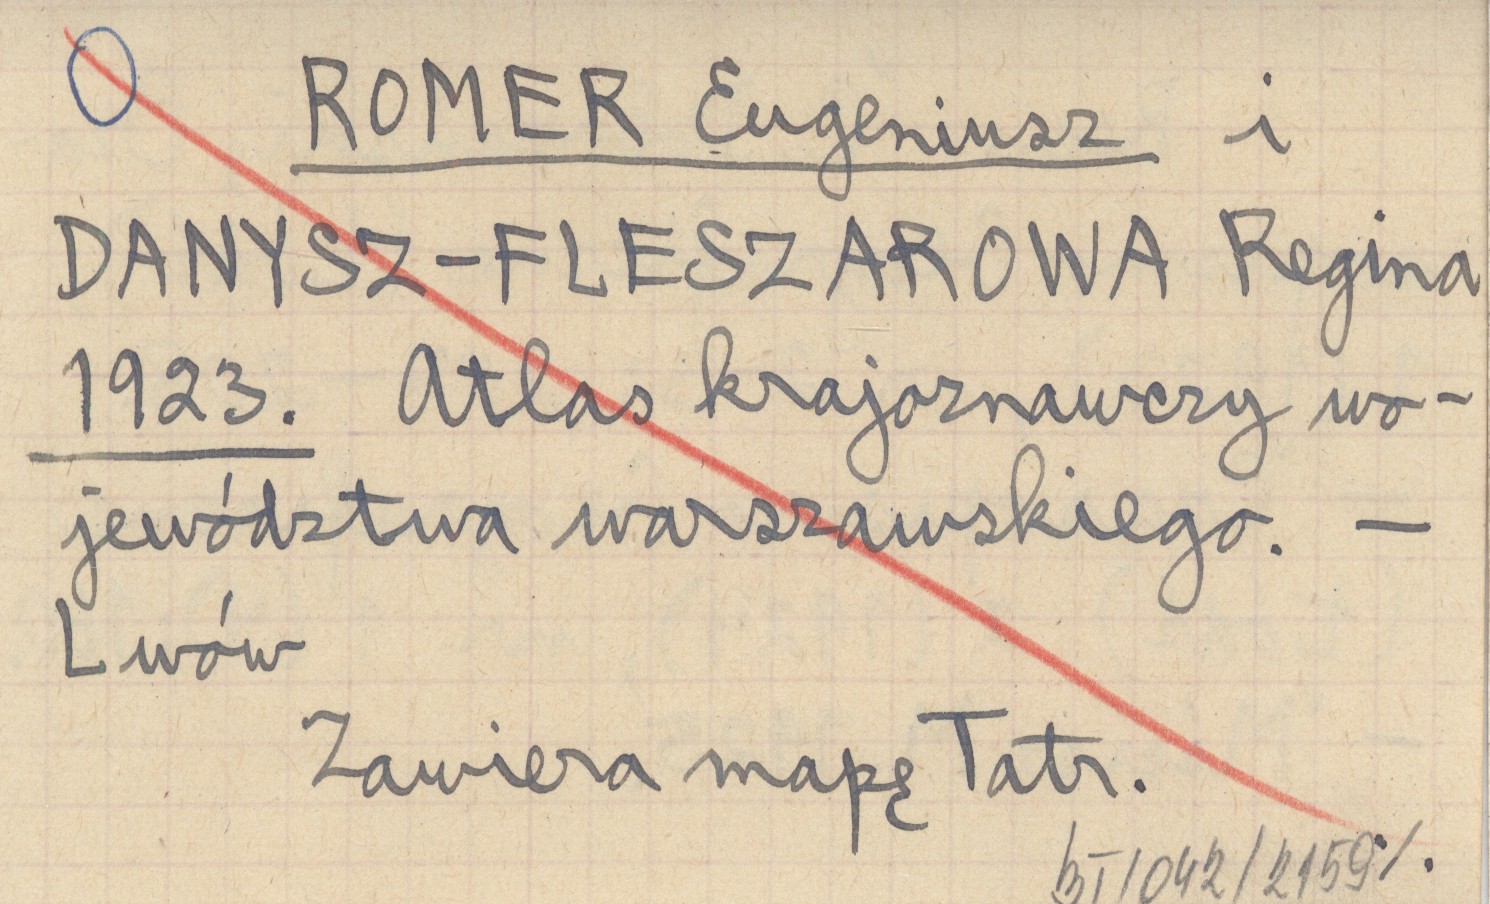 ROMER Eugeniusz i
DANYSZ-FLESZAROWA Regina
1923. Atlas krajoznawczy wo-
jewództwa warszawskiego. —
Lwów
Zawiera mapę Tatr.
/042/2159/.